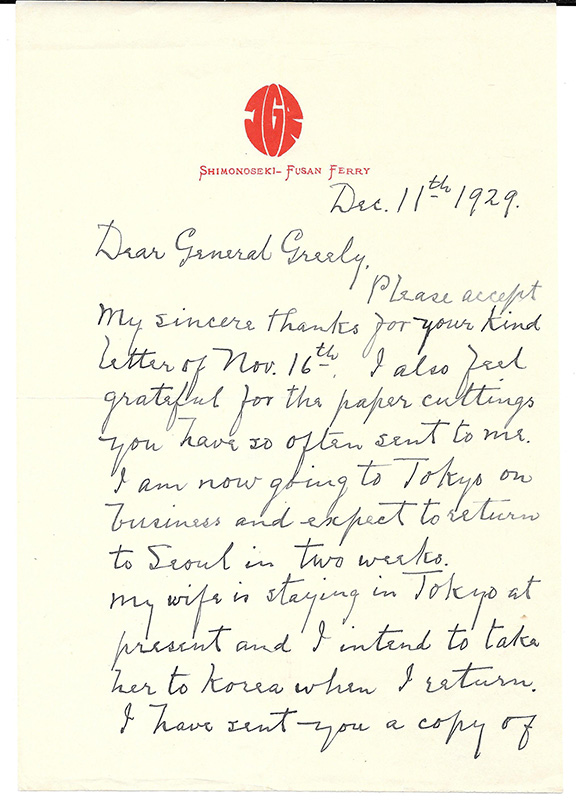 JGR
SHIMONOSEKI-FUSAN FERRY
Dec. 11th 1929.
Dear General Greely,
Please accept
my sincere thanks for your kind
letter of Nov. 16th. I also feel
grateful for the paper cuttings
you have so often sent to me.
I am now going to Tokyo on
business and expect to return
to Seoul in two weeks.
My wife is staying in Tokyo at
present and I intend to take
her to Korea when I return.
I have sent you a copy of